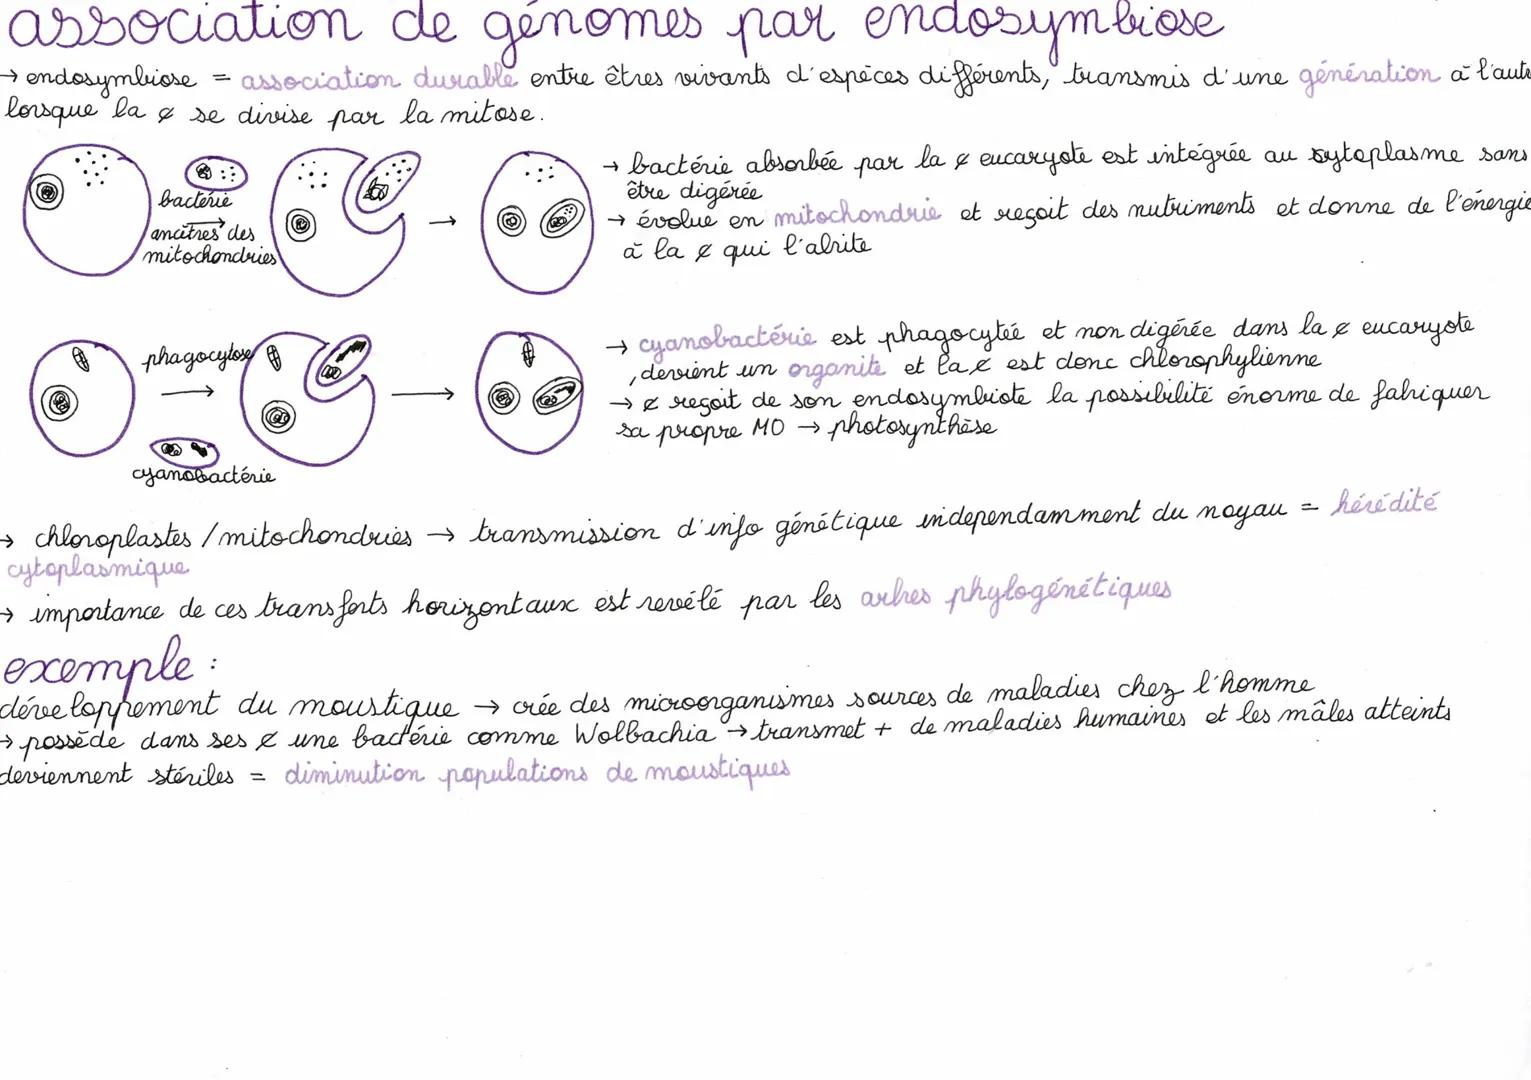 association de génomes par endosymbiose
→ endosymbiose = association durable entre êtres vivants d'espèces différents, transmis d'une génération à l'aute
lorsque la ¢ se divise par la mitose.
bactérie
ancêtres des
mitochondries
→ bactérie absorbée par la ¢ eucaryote est intégrée au sytoplasme sans
être digérée
→ évolue en mitochondrie et reçoit des nutriments et donne de l'énergie
à la ¢ qui l'abrite
phagocytose
cyanobactérie
→ cyanobactérie est phagocytée et non digérée dans la ¢ eucaryote
, devient un organite et la ¢ est donc chlorophylienne
→ ¢ reçoit de son endosymbiote la possibilité énorme de fabriquer
sa propre MO → photosynthèse
→ chloroplastes / mitochondries → transmission d'info génétique independamment du noyau = hérédité
cytoplasmique
→ importance de ces transferts horizontaux est revélé par les arbres phylogénétiques
exemple :
développement du moustique → crée des microorganismes sources de maladies chez l'homme
→ possède dans ses ¢ une bactérie comme Wolbachia → transmet + de maladies humaines et les mâles atteints
deviennent stériles = diminution populations de moustiques